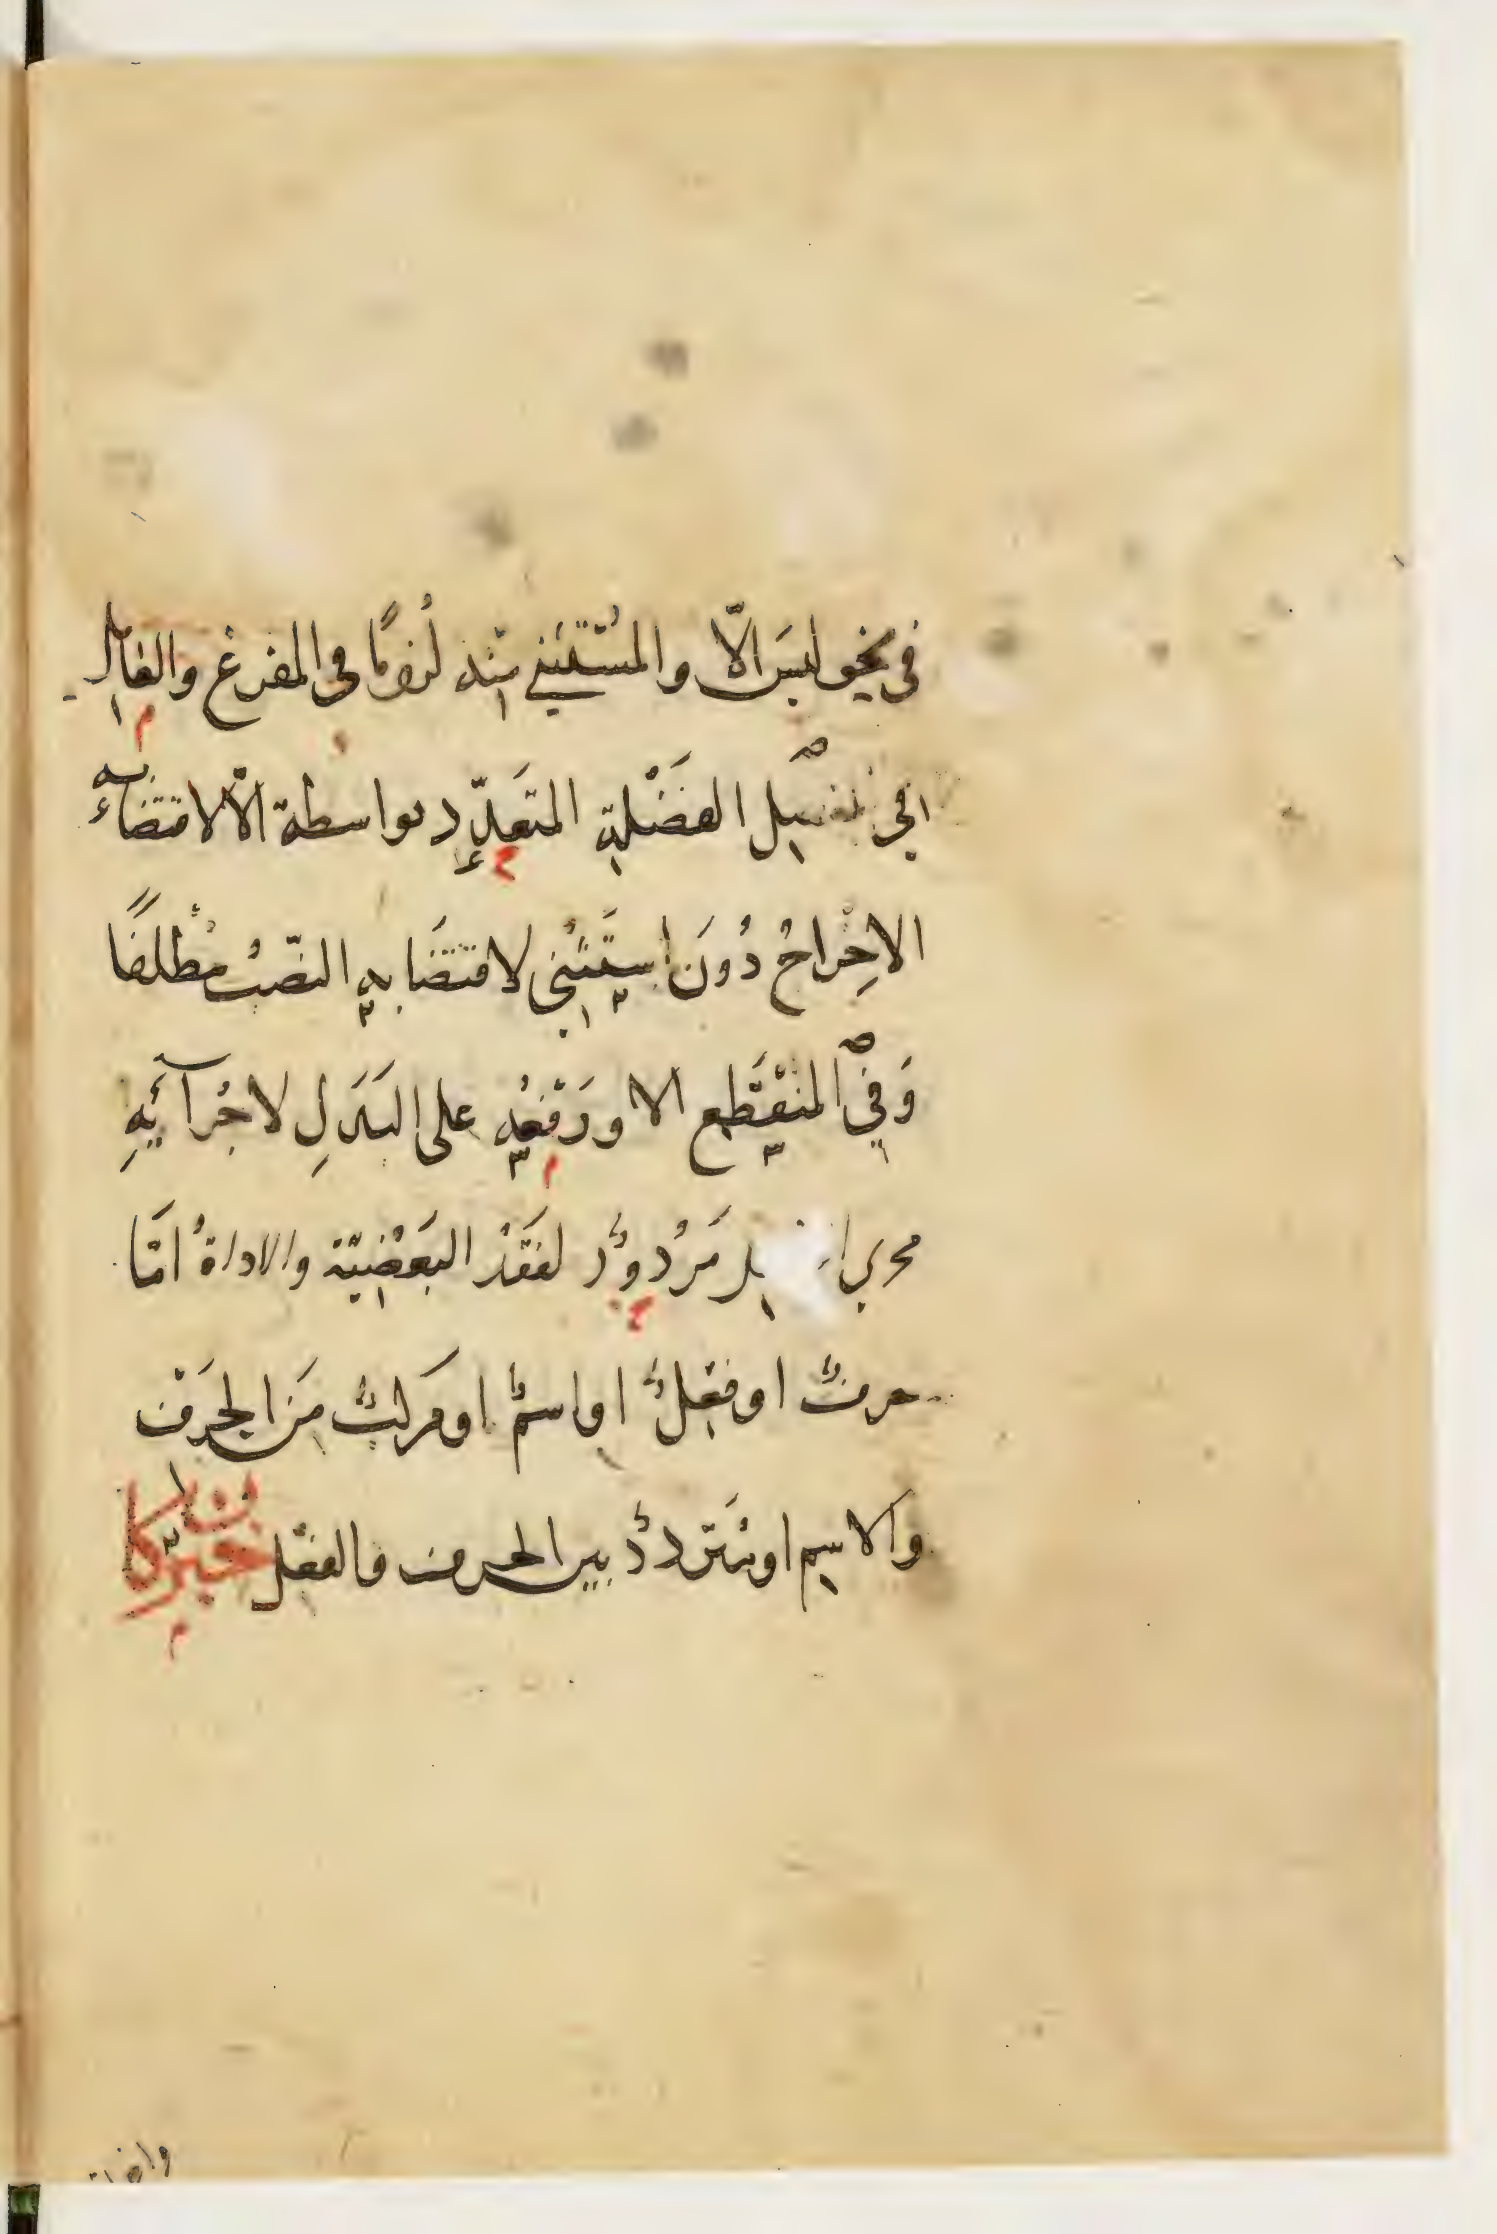 في نحو ليسَ الّا والمُسْتَثنى مِنْه لُزومًا في المفرغ والعامل
في الفَضْلةِ المتعَدِّد بواسطة الّا لاقتضائه
الاِخْراجُ دُونَ اسْتَثْنى لاقتضَايهِ النصْبُ مُطْلقًا
وَفي المنْقَطِع الا ورَفْعُه على البَدَلِ لاجْرآئهِ
مَرْدودٌ لفَقْدْ البَعْضيّة والاداةُ امّا
حرفٌ او فِعْلٌ او اسمٌ او مركبٌ مَن الحَرْف
والاسِم او متَردّدٌ بين الحرف والفعْل خبرٌ كان